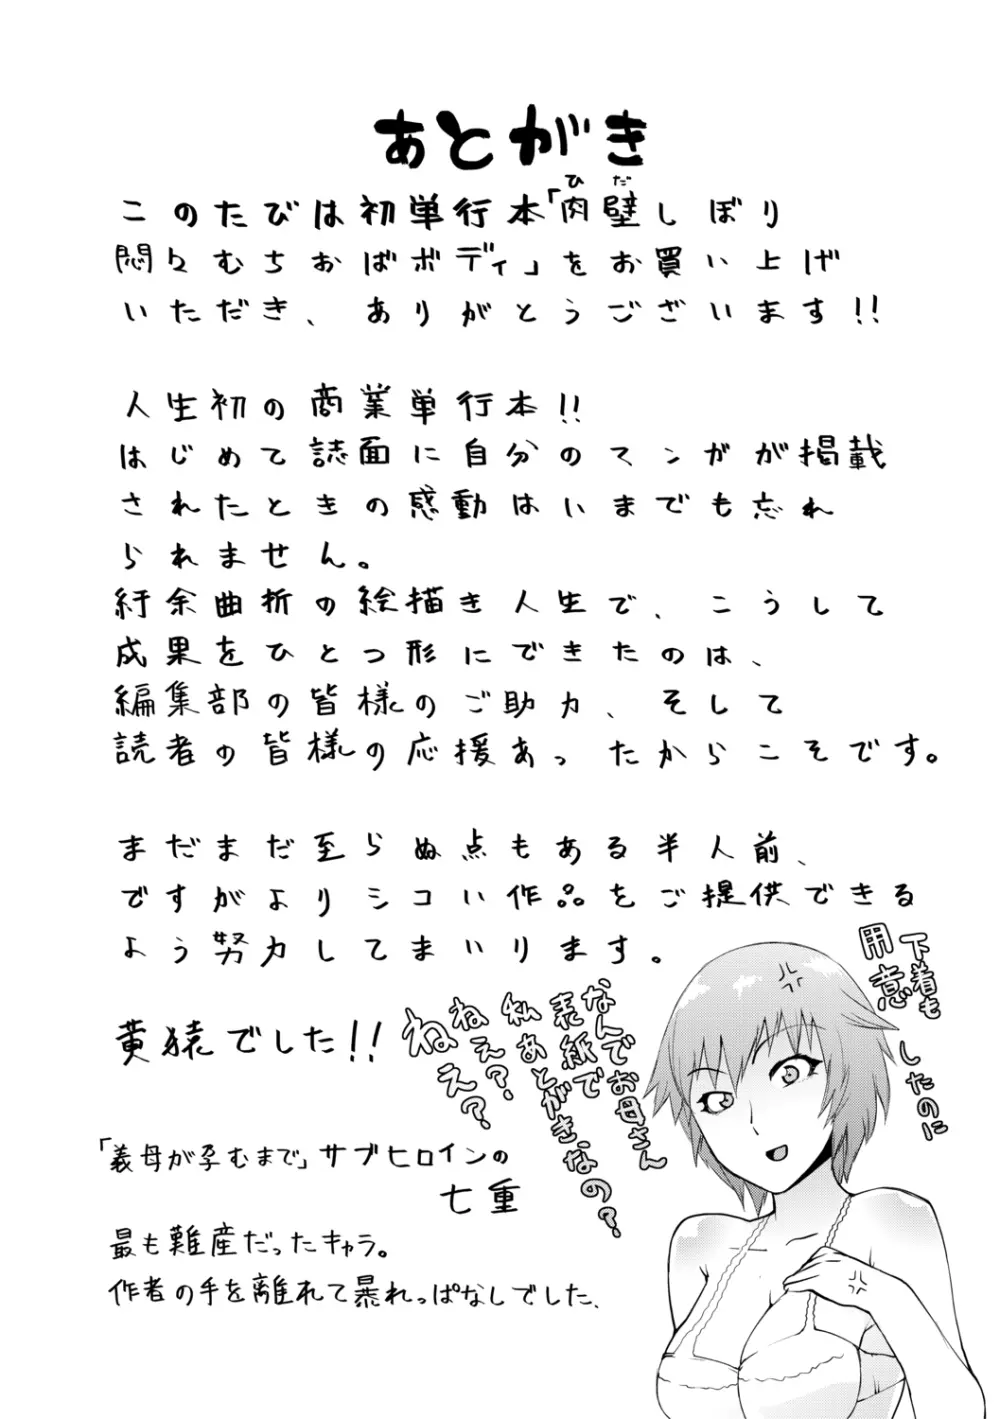 あとがき
このたびは初単行本「肉壁しぼり
ひだ
悶々むちおばボディ」をお買い上げ
いただき、ありがとうございます!!
人生初の商業単行本!!
はじめて誌面に自分のマンガが掲載
されたときの感動はいまでも忘れ
られません。
紆余曲折の絵描き人生で、こうして
成果をひとつ形にできたのは、
編集部の皆様のご助力、そして
読者の皆様の応援あったからこそです。
まだまだ至らぬ点もある半人前、
ですがよりシコい作品をご提供できる
よう努力してまいります。
黄猿でした!!
下着も
用意
したのに
なんでお母さん
表紙で
私あとがきなの?
ねぇ?
ねぇ?
「義母が孕むまで」サブヒロインの
七重
最も難産だったキャラ。
作者の手を離れて暴れっぱなしでした、